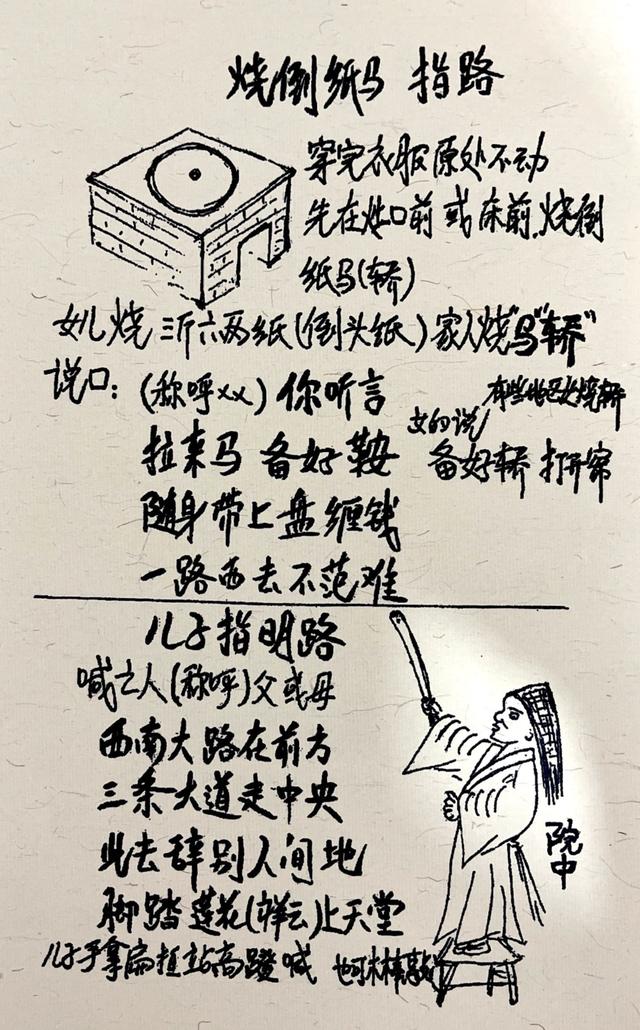 烧倒纸马 指路
穿完衣服原处不动
先在灶口前或床前.烧倒
纸马(轿)
女儿烧三斤六两纸(倒头纸)家人烧"马""轿"
说口:(称呼xx)你听言
有些地区女烧轿
女的说
拉来马 备好鞍
备好轿 打开帘
随身带上盘缠钱
一路西去不范难
儿子指明路
喊亡人(称呼)父或母
西南大路在前方
三条大道走中央
此去辞别人间地
脚踏莲花(祥云)上天堂
院中
儿子手拿扁担站高蹬喊